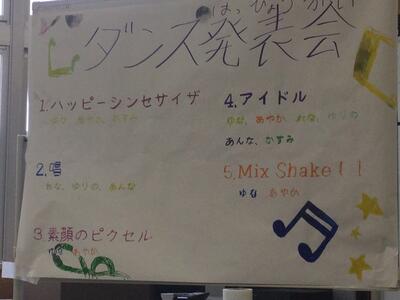 はっぴょうかい
ダンス発表会
1.ハッピーシンセサイザ
ゆな あやか かすみ
2.唱
れな、ゆりの、あんな
3.素顔のピクセル
ゆな あやか
4.アイドル
ゆな、あやか れな、ゆりの
あんな、かすみ
5.Mix Shake!!
ゆな あやか